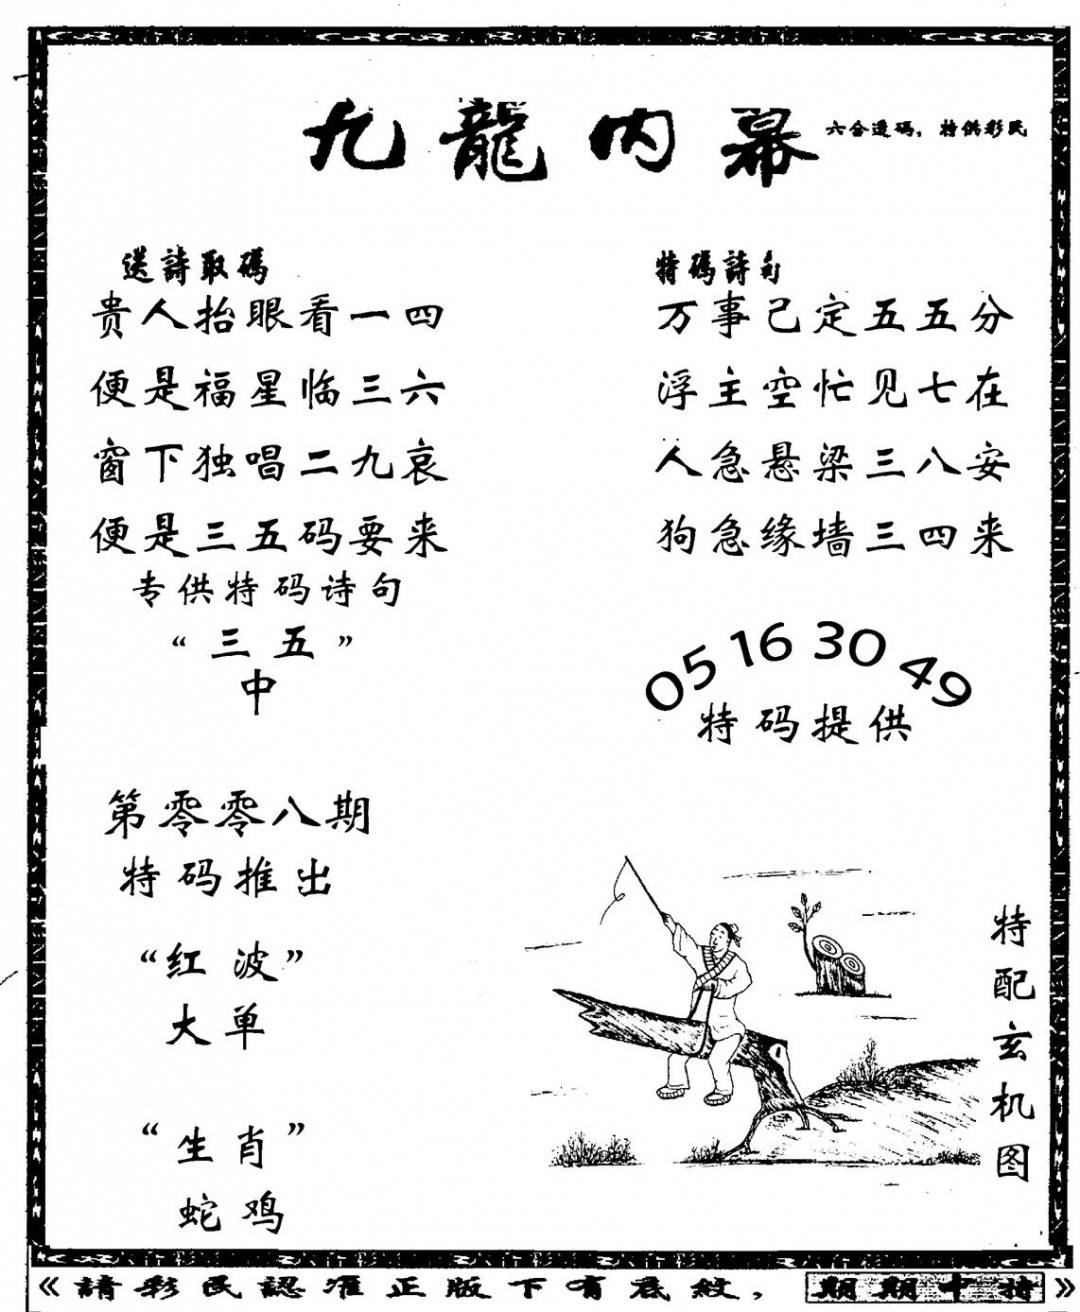 九龍内幕
六合透碼，特供彩民
送詩取碼
贵人抬眼看一四
便是福星临三六
窗下独唱二九哀
便是三五码要来
专供特码诗句
“三五”
中
特碼詩句
万事己定五五分
浮主空忙见七在
人急悬梁三八安
狗急缘墙三四来
05 16 30 49
特码提供
第零零八期
特码推出
“红波”
大单
“生肖”
蛇鸡
特配玄机图
《請彩民認准正版下有底紋，期期中特》